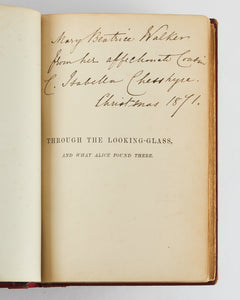 Mary Beatrice Walker
from her affectionate Cousin
C. Isabella Chesshyre.
Christmas 1871.
THROUGH THE LOOKING-GLASS,
AND WHAT ALICE FOUND THERE.